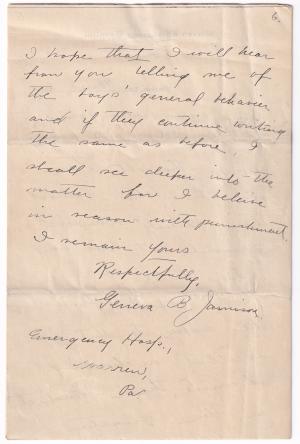 6.
I hope that I will hear
from you telling me of
the boys' general behavior
and if they continue writing
the same as before, I
shall see deeper into the
matter for I believe
in season with punishment.
I remain yours
Respectfully,
Geneva B. Jamison.
Emergency Hosp.,
Warren,
Pa